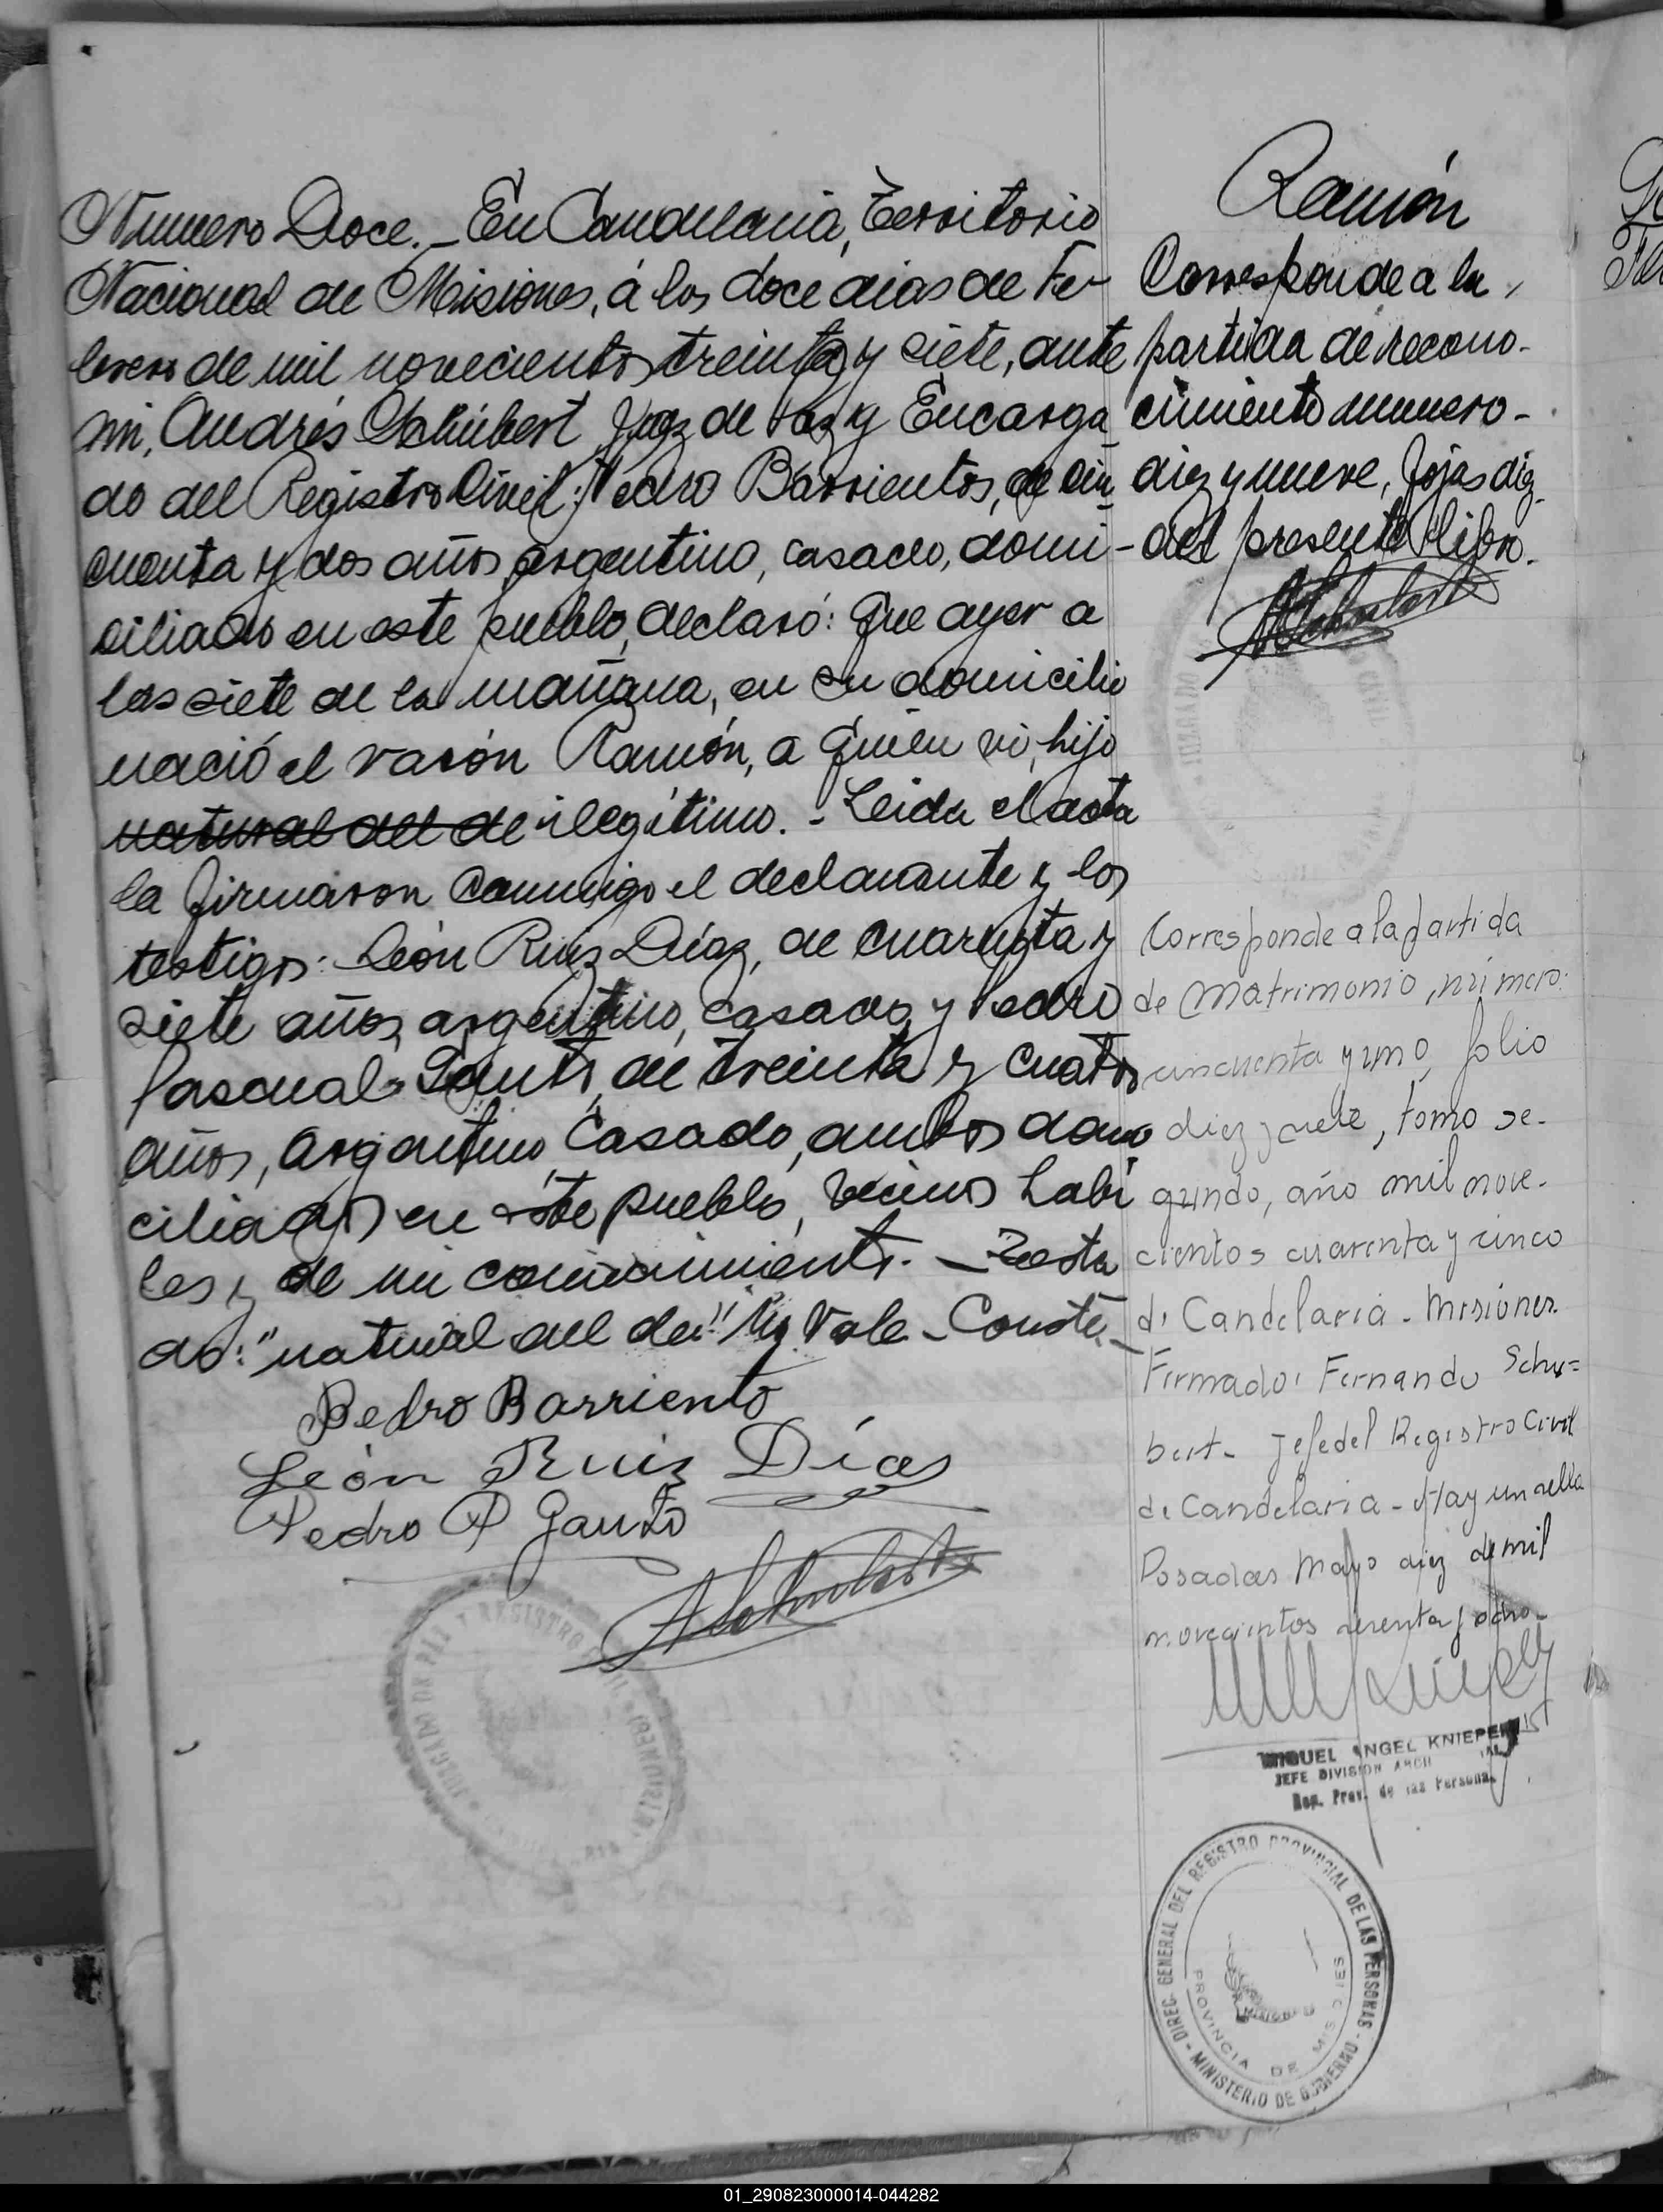 Numero Doce.- En Candelaria, Territorio
Nacional de Misiones, á los doce dias de Fe-
brero de mil novecientos treinta y siete, ante
mi, Andrés Schubert Juez de Paz y Encarga
do del Registro Civil: Pedro Barrientos, de cin
cuenta y dos años, argentino, casado, domi-
ciliado en este pueblo, declaró: que ayer a
las siete de la mañana, en su domicilio
nació el varón Ramón, a quien vi, hijo
natural del de ilegítimo.- Leida el acta
la firmaron conmigo el declarante y los
testigos: León Ruiz Díaz, de cuarenta y
siete años, argentino, casado, y Pedro
Pascual Gauto, de treinta y cuatro
años, argentino, casado, ambos domi
ciliados en este pueblo, vecinos habi
les y de mi conocimiento.- Testa
do: "natural del de:" No Vale- Conste.-
Pedro Barriento
León Ruiz Días
Pedro P Gauto
ASchubert
JUZGADO DE PAZ Y REGISTRO CIVIL
Ramón
Corresponde a la
partida de recono-
cimiento numero-
diez y nueve, fojas diez-
del presente libro.
ASchubert
JUZGADO CIVIL
Corresponde a la partida
de Matrimonio, número:
cincuenta y uno, folio
diez y siete, tomo se-
gundo, año mil nove-
cientos cuarenta y cinco
de Candelaria - Misiones.
Firmado: Fernando Schu=
bert- Jefe del Registro Civil
de Candelaria - Hay un sello
Posadas Mayo diez de mil
novecientos sesenta y ocho-
MIGUEL ANGEL KNIEPER
JEFE DIVISION
Reg. Prov. de las Personas
DIREC. GENERAL DEL REGISTRO PROVINCIAL DE LAS PERSONAS - MINISTERIO DE GOBIERNO -
PROVINCIA DE MISIONES
01_290823000014-044282